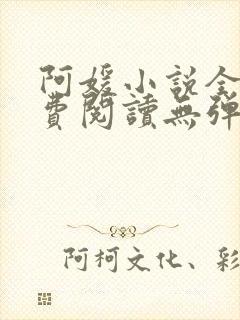 阿媛小說全
費閱讀無彈
阿柯文化、彩